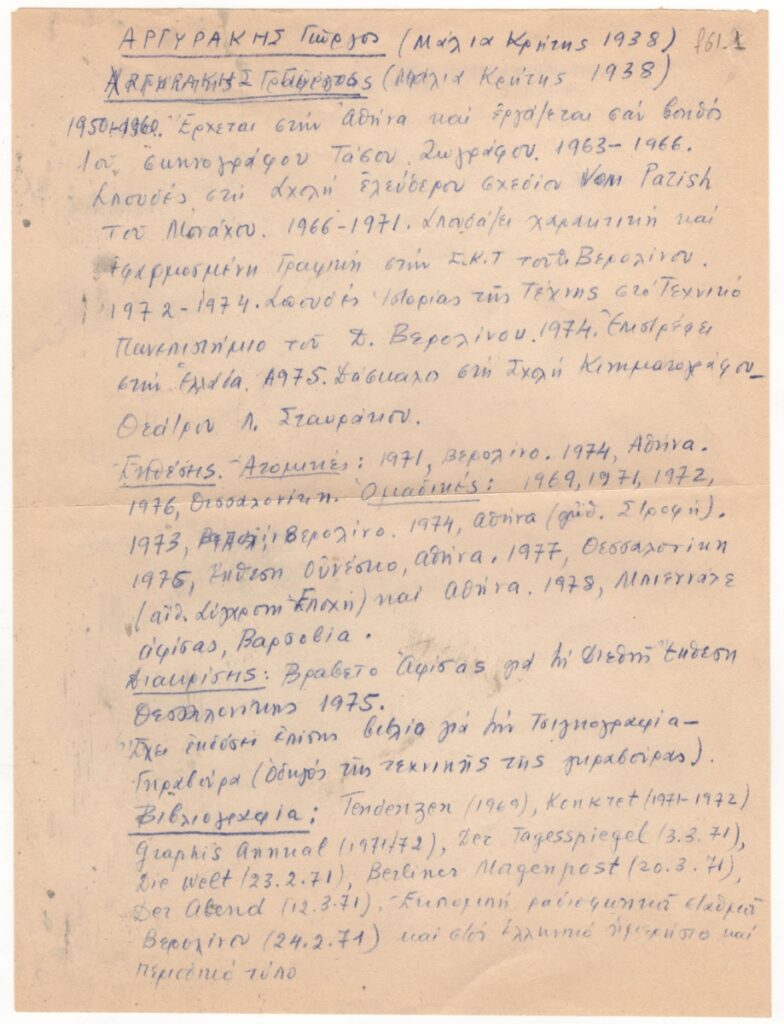 ΑΡΓΥΡΑΚΗΣ Γιῶργος (Μάλια Κρήτης 1938)
(Μάλια Κρήτης 1938)
1950-1960. Ἔρχεται στήν Ἀθήνα καί ἐργάζεται σάν βοηθός
τοῦ σκηνογράφου Τάσου Ζωγράφου. 1963-1966.
Σπουδές στή Σχολή ἐλεύθερου σχεδίου Vom Parish
τοῦ Μονάχου. 1966-1971. Σπουδάζει χαρακτική καί
ἐφαρμοσμένη Γραφική στήν Σ.Κ.Τ τοῦ Βερολίνου.
1972-1974. Σπουδές Ἱστορίας τῆς Τέχνης στό Τεχνικό
Πανεπιστήμιο τοῦ Δ. Βερολίνου. 1974. Ἐπιστρέφει
στήν Ἑλλάδα. 1975. Δάσκαλος στή Σχολή Κινηματογράφου-
Θεάτρου Λ. Σταυράκου.
Ἐκθέσης. Ἀτομικές: 1971, Βερολίνο. 1974, Ἀθήνα.
1976, Θεσσαλονίκη. Ὁμαδικές: 1969, 1971, 1972,
1973, Βερολίνο. 1974, Ἀθήνα (αἰθ. Στροφή).
1975, Ἔκθεση Οὐνέσκο, Ἀθήνα. 1977, Θεσσαλονίκη
(αἴθ. Σύγχρονη Ἐποχή) καί Ἀθήνα. 1978, Μπιεννάλε
ἀφίσας, Βαρσοβία.
Διακρίσης: Βραβεῖο Ἀφίσας γιά τή Διεθνῆ Ἔκθεση
Θεσσαλονίκης 1975.
Ἔχει ἐκδόσει ἐπίσης βιβλίο γιά τήν Τσιγκογραφία-
Γκραβούρα (Ὁδηγός τῆς τεχνικῆς τῆς γκραβούρας).
Βιβλιογραφία: Tendenzen (1969), Konkret (1971-1972)
Graphis Annual (1971/72), Der Tagesspiegel (3.3.71),
Die Welt (23.2.71), Berliner Magenpost (20.3.71),
Der Abend (12.3.71), Ἐκπομπή ραδιοφωνικοῦ σταθμοῦ
Βερολίνου (24.2.71) καί στόν ἑλληνικό ἡμερήσιο καί
περιοδικό τύπο